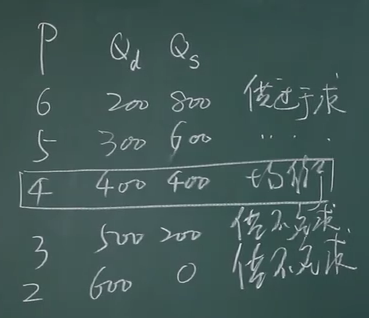 P Qd Qs
6 200 800 供过于求
5 300 600 ....
4 400 400 均衡
3 500 200 供不应求
2 600 0 供不应求